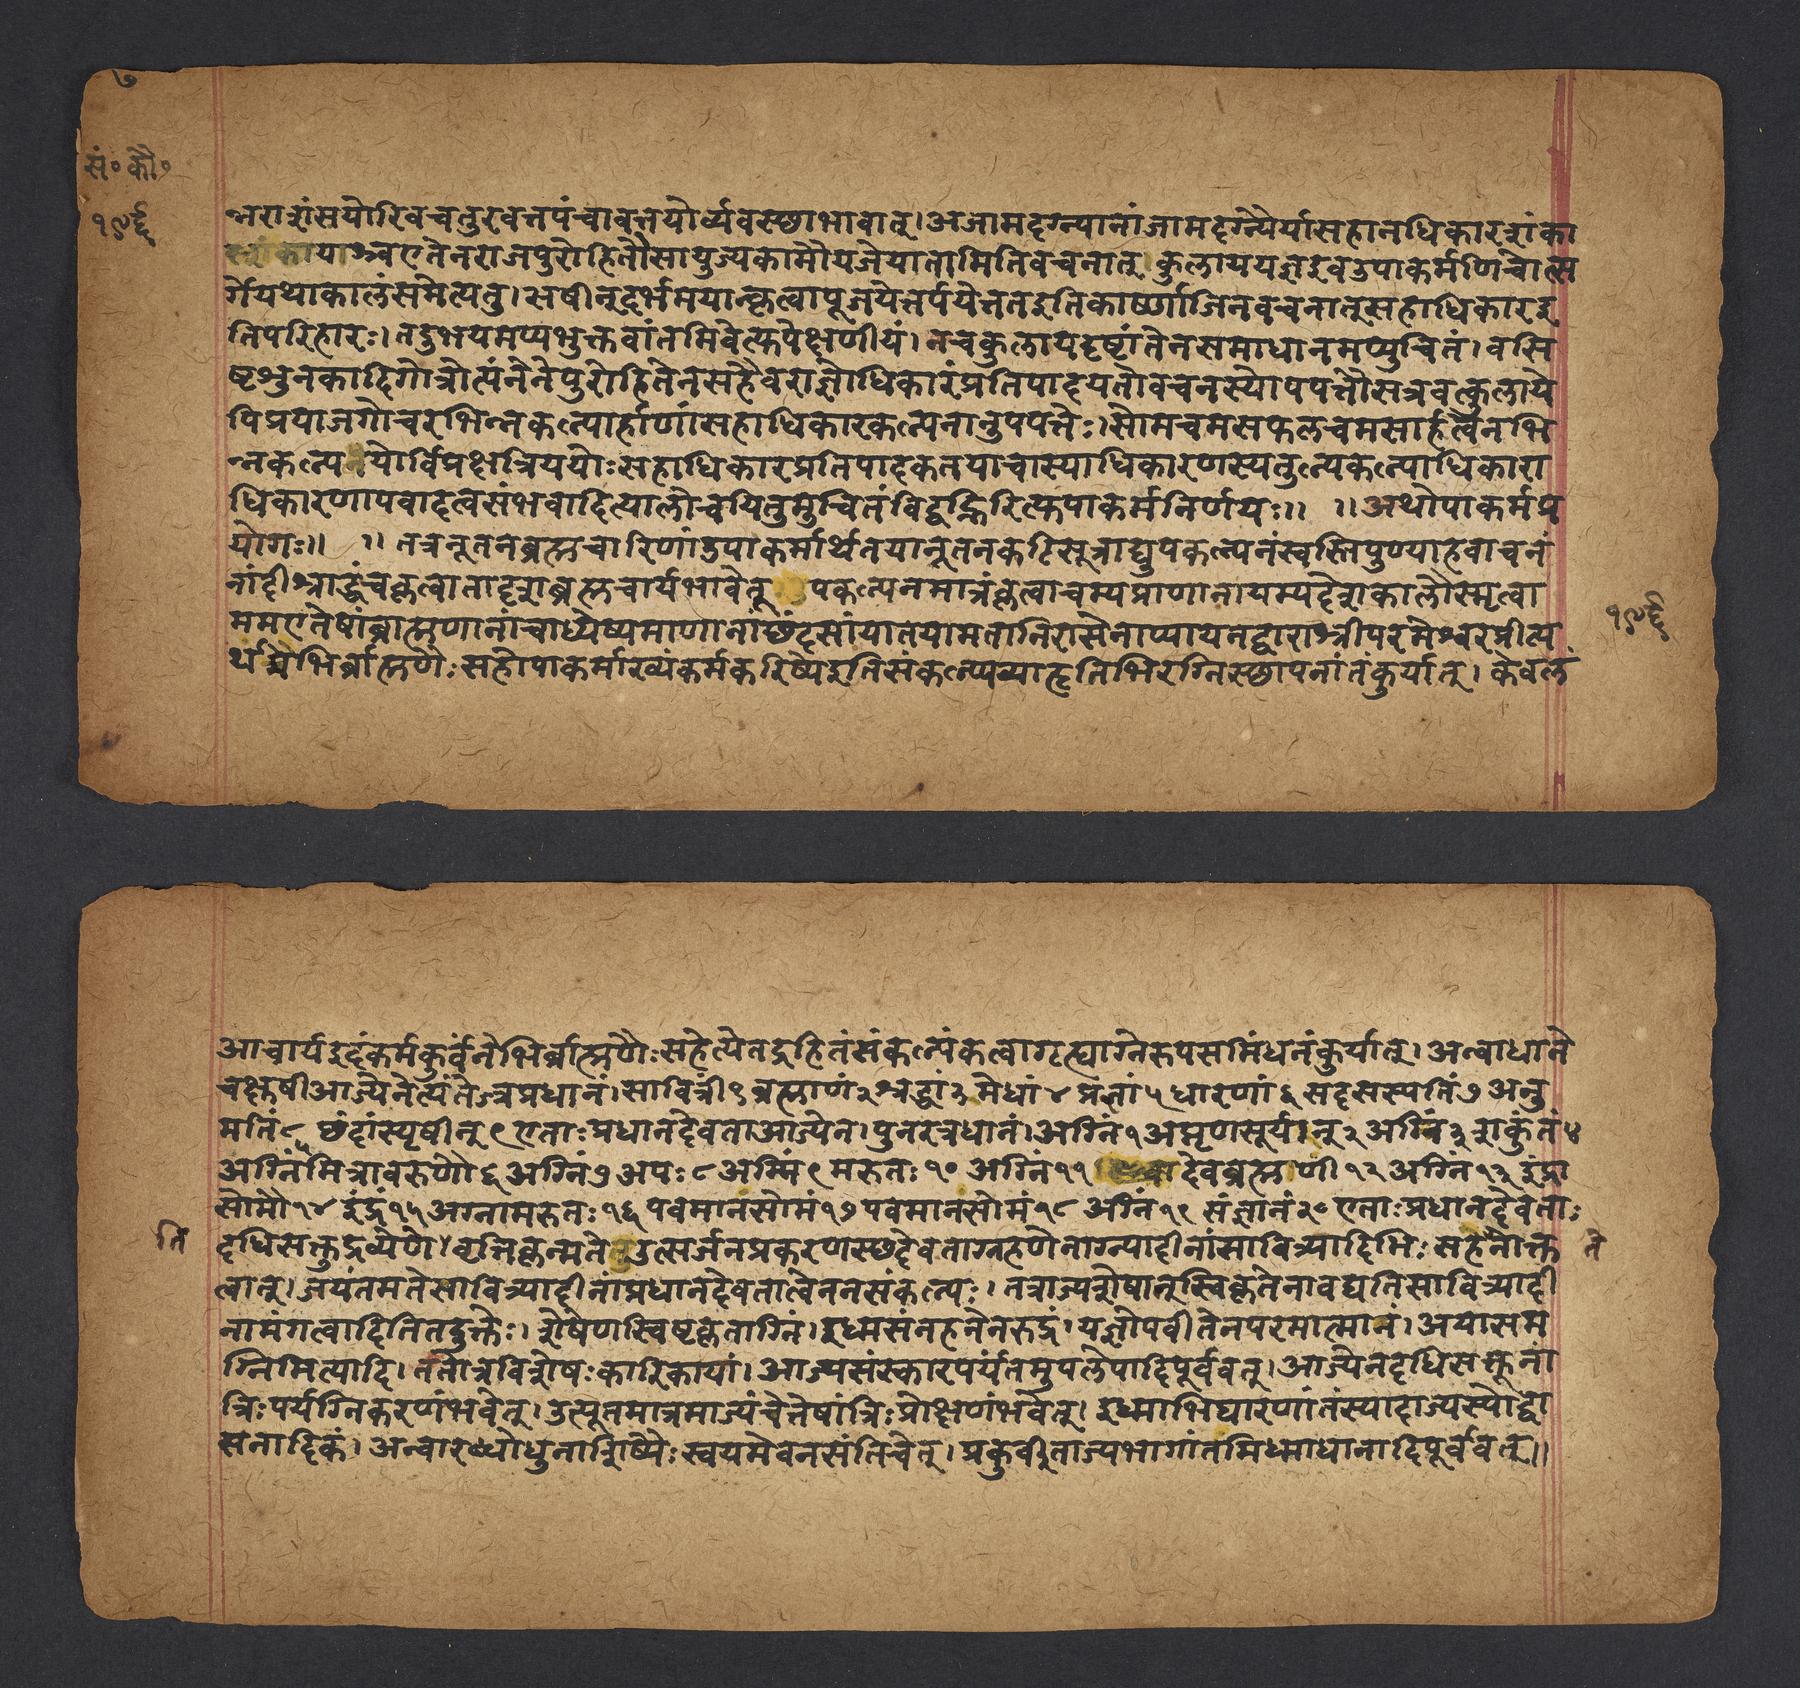 ७
सं॰कौ॰
१९६
भराशंसयोरिवचतुरवत्तपंचावत्तयोर्व्यवस्छाभावात्।अजामदग्न्यानांजामदग्न्यैर्यासहानधिकारशंका
कायाश्वएतेनराजपुरोहितौसायुज्यकामौयजेयातामितिवचनात् कुलाययज्ञइवउपाकर्मणिचोत्स
र्गेयथाकालंसमेत्यतु।सषीनूदर्भमयान्कृत्वापूजयेत्तर्पयेत्ततइतिकार्ष्णाजिनवचनात्सहाधिकारइ
तिपरिहारः।तदुभयमप्यभुक्तवांतमिवेत्फपेक्षणीयं।नचकुलायदृष्टांतेनसमाधानमप्युचितं।वसि
ष्टशुनकादिगोत्रोत्पंनेनेपुरोहितेनसहैवराज्ञोधिकारंप्रतिपादयतोवचनस्योपपत्तौसत्रवत्कुलाये
विप्रयाजगोचरभिन्नकल्पोर्हाणांसहाधिकारकल्पनानुपपत्तेः।सोमचमसफलचमसार्हत्वेनभि
न्नकल्पेनयोर्विप्रक्षत्रिययोःसहाधिकारप्रतिपादकतयाचास्याधिकारणस्यतुल्यकल्पाधिकारा
धिकारणापवादत्वसंभवादित्यालोचयितुमुचितंविद्वद्भिरित्फपाकर्मनिर्णयः॥ ॥अथोपाकर्मप्र
योगः॥ ॥तत्रनूतनब्रह्मचारिणांउपाकर्मार्थतयानूतनकटिसूत्राद्युपकल्पनंस्वस्तिपुण्याहवाचनं
नांदीश्राद्धंचकृत्वातादृशब्रह्मचार्यभावेतू पकल्पनमात्रंकृत्वाचम्यप्राणानायम्यदेशकालौस्मृत्वा
ममएतेषांब्राह्मणानांचाध्येष्यमाणानांछंदसांयातयामतानिरासेनाप्यायनद्वाराश्रीपरमेश्वरप्रीत्य
१९६
र्थमेभिर्ब्राह्मणैःसहोपाकर्माख्यंकर्मकरिष्येइतिसंकल्प्यव्याहृतिभिरग्निस्छापनांतंकुर्यात्। केवलं
आचार्यइदंकर्मकुर्वंनेभिर्ब्राह्मणैःसहेत्येतद्रहितंसंकल्पंकत्वागृत्घाग्नेरुपसमिंधनंकुर्यात्।अन्वाधाने
चक्षुषीआज्येनेत्यंतेऽत्रप्रधानं।सावित्रीं१ब्रह्माणं२श्रद्धां३मेधां४प्रज्ञां५धारणां६सदसस्पतिं७अनु
मतिं८छंदांस्पृषीन्९एताःप्रधानदेवताआज्येन।पुनरत्रधानं।अग्निं१अप्तृणसूर्यान्२अग्निं३शकुंतं४
अग्निंमित्रावरुणौ६अग्निं७अपः८अग्निं९मरुतः१०अग्निं११ देवब्रह्माणी१२अग्निं१३इंद्रा
सोमौ१४इंद्रं१५अग्नामरुतः१६पवमानंसोमं१७पवमानंसोमं१८अग्निं१९संज्ञानं२०एताःप्रधानदेवताः
ति
दधिसक्तुद्रव्येणे।वृत्तिकृन्मतेउत्सर्जनप्रकरणस्छदेवताग्नहणेनाग्न्यादीनांसावित्र्यादिभिःसहेनोक्त
ते
त्वात्।जयंतमतेसावित्र्यादीनांप्रधानदेवतात्वेननसंकल्पः।तत्राज्यशेषात्स्विकृतेनावद्यतिसावित्र्यादी
नामंगत्वादितितदुक्तेः।शेषेणस्विष्टकृताग्निं।इध्मसंनहनेनरुद्रं।यज्ञोपवीतेनपरमात्मानं।अयासम
ग्निमित्यादि।ततोत्रविशेषःकारिकायां।आज्यसंस्कारपर्यंतमुपलेपादिपूर्ववत्।आज्येनदधिसक्तूनां
त्रिःपर्यग्निकरणंभवेत्।उत्पूतमात्रमाज्यंचेत्तेषांत्रिःप्रोक्षणंभवेत्।इध्माभिघारणांतंस्यादाज्यस्योद्वा
सनादिकं।अन्वारब्धोधुनाशिष्यैःस्वयमेवनसंतिचेत्।प्रकुर्वीताज्यभागांतमिध्माधानादिपूर्ववत्॥